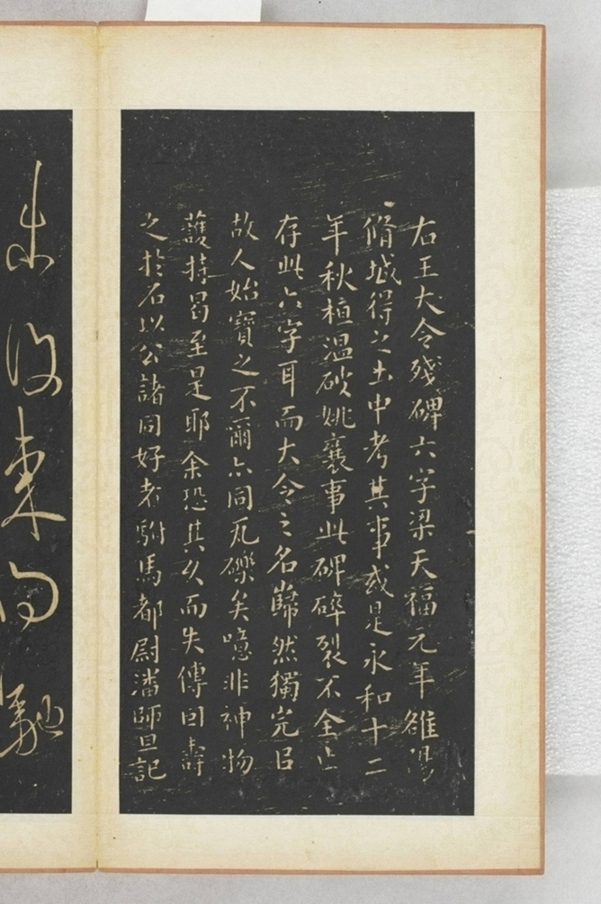 右王大令殘碑六字梁天福元年雒陽
脩城得之土中考其事或是永和十二
年秋桓溫破姚襄事此碑碎裂不全止
存此六字耳而大令之名巋然獨完㠯
故人始寶之不爾亦同瓦礫矣噫非神物
護持曷至是耶余恐其久而失傳囙壽
之於石以公諸同好者駙馬都尉潘師旦記